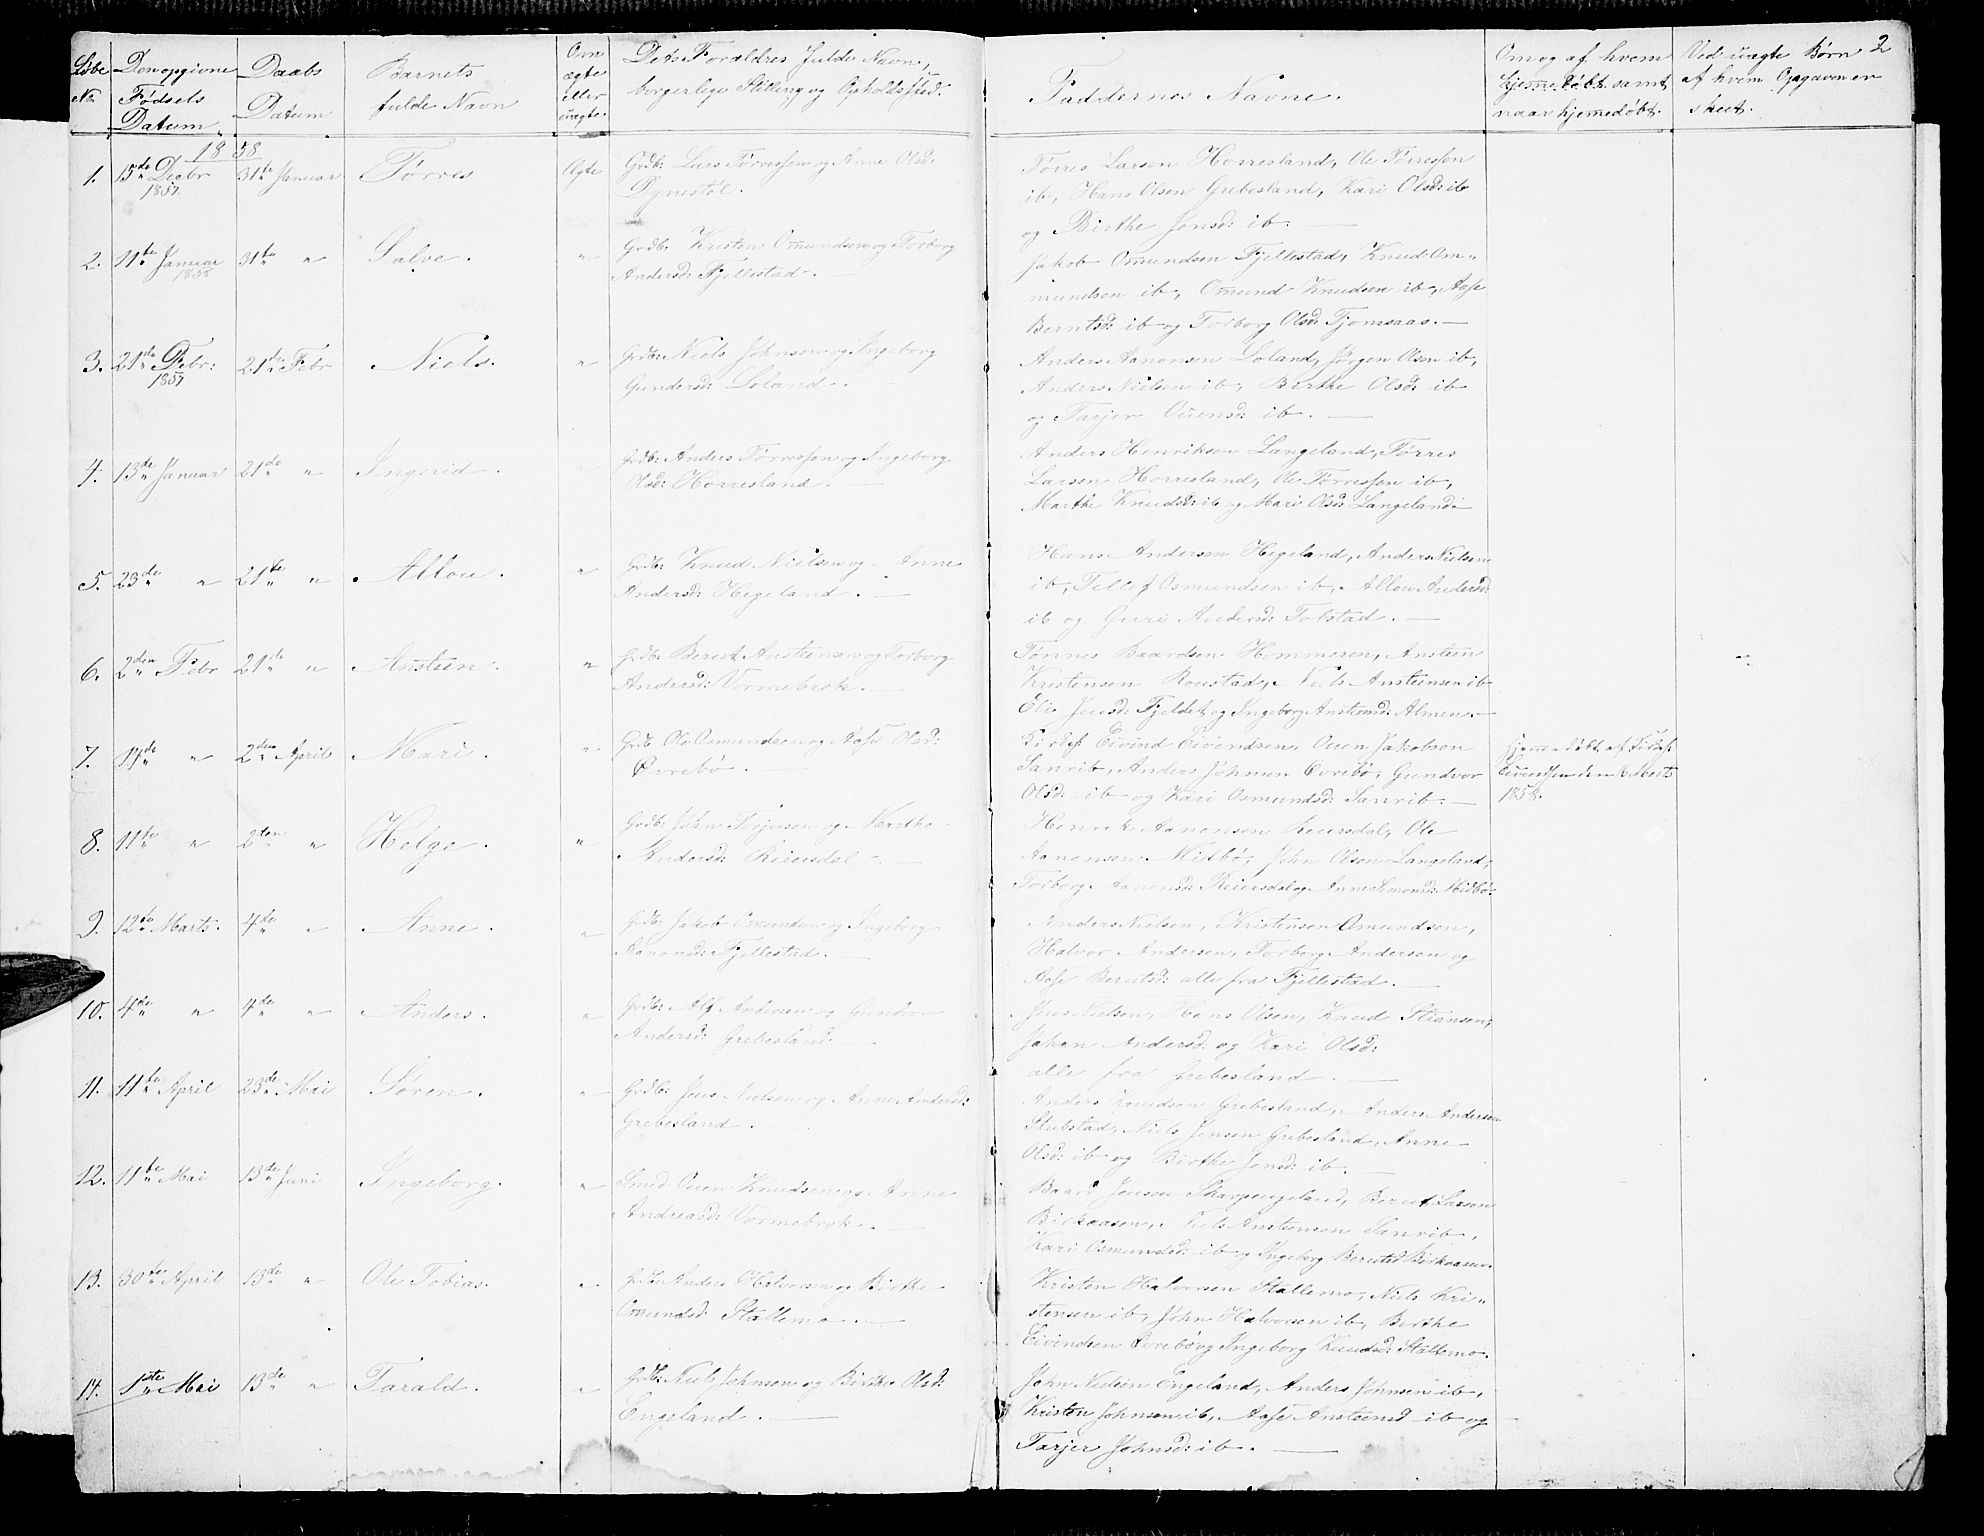 Løbe No
Den opgivne Fødsels Datum
Daabs Datum
Barnets fulde Navn
Om ægte eller uægte
Dets Forældres fulde Navn, borgerlige Stilling og Opholdssted.
Faddernes Navne.
Om og af hvem hjemedøbt samt naar hjemedøbt.
Ved uægte Børn af hvem Opgaven er skeet.
2
1858
1. 15de Decbr 1857. 31te Januar Tørres Ægte Grdb: Lars Tørressen og Anne Olsd: Dynestøl.
Tørres Larsen Horresland, Ole Tørressen
ib, Hans Olsen Grebesland, Kari Olsd: ib
og Birthe Jensd: ib. —
2. 11te Januar 1858 31te " Salve. " Grdb: Kristen Omundsen og Torborg Andersd: Fjellestad. —
Jakob Omundsen Fjellestad, Knud Om-
mundsen ib, Omund Knudsen ib, Aase
Berntsd: ib og Torborg Olsd: Tjomsaas. —
3. 21de Febr: 1857 21de Febr Niels. " Grdb: Niels Johnsen og Ingeborg Gundersd: Loland. —
Anders Aanonsen Loland, Jørgen Olsen ib,
Anders Nielsen ib, Birthe Olsd: ib
og Tarjer Ouensd: ib. —
4. 13de Januar 21de " Ingerid. " Grdb: Anders Tørressen og Ingeborg Olsd: Horresland. —
Anders Henriksen Langeland, Tørres
Larsen Horresland, Ole Tørressen ib,
Marthe Knudsd: ib og Mari Olsd: Langeland.
5. 23de " 21de " Allou. " Grdb: Knud Nielsen og Anne Andersd: Hegeland. —
Hans Andersen Hegeland, Anders Nielsen
ib, Tellef Osmundsen ib, Allou Andersd:
ib og Guri Andersd: Tolstad. —
6. 2den Febr 21de " Ansteen. " Grdb: Berent Ansteensen og Torborg Andersd: Vormebrok. —
Tønnes Baardsen Hommeren, Ansteen
Kristensen Roustad, Niels Ansteensen ib
Eli Jensd: Fjeldet og Ingeborg Ansteensd: Almen. —
7. 14de " 2den April Mari. " Grdb Ole Osmundsen og Aase Olsd: Øvrebø. —
Eivind Eivendsen, Ouen Jakobsen
Sanrib, Anders Johnsen Øvrebø, Gundvor
Olsd: ib og Kari Osmundsd: Sanrib. —
Hjemedøbt af
Eivendsen den 6 Marts
1858.
8. 11te " 2den " Helge. " Grdb: John Terjusen og Marthe Andersd: Reiersdal. —
Henrik Aanonsen Reiersdal, Ole
Aanonsen Midbø, John Olsen Langeland,
Torborg Aanonsd: Reiersdal og Anne Simonsd: Midbø.
9. 12te Marts. 4de " Anne. " Grdb: Jakob Omundsen og Ingeborg Aanonsd: Fjellestad. —
Anders Nielsen, Kristensen Omundsen,
Halvor Andersen, Torborg Andersen og
Aase Berntsd: alle fra Fjellestad. —
10. 4de " 4de " Anders. " Grdb: Alf Andersen og Gunhvor Andersd: Grebesland. —
Jens Nielsen, Hans Olsen, Knud Stiansen,
Johan Andersd: og Kari Olsd:
alle fra Grebesland. —
11. 11te April 23de Mai Søren. " Grdb: Jens Nielsen og Anne Andersd: Grebesland. —
Anders Knudsen Grebesland, Anders Andersen
Stubstad, Niels Jensen Grebesland, Anne
Olsd: ib og Birthe Jensd: ib. —
12. 11te Mai 13de Juni Ingeborg. " Smed Ouen Knudsen og Anne Andreasd: Vormebrok. —
Baard Jensen Skarpengeland, Berent Larsen
Birkaasen, Niels Ansteensen Sanrib,
Kari Osmundsd: ib og Ingeborg Berentsd Birkaasen.
13. 30te April 13de " Ole Tobias. " Grdb: Anders Halvorsen og Birthe Omundsd: Stallemo. —
Kristen Halvorsen Stallemo, Niels Kri-
stensen ib, John Halvorsen ib, Birthe
Eivindsen Øvrebø og Ingeborg Knudsd: Stallemo.
14. 1ste Mai 13de " Tarald. " Grdb: Niels Johnsen og Birthe Olsd: Engeland. —
John Nielsen Engeland, Anders Johnsen ib,
Kristen Johnsen ib, Aase Ansteensd ib og
Tarjer Johnsd: ib. —